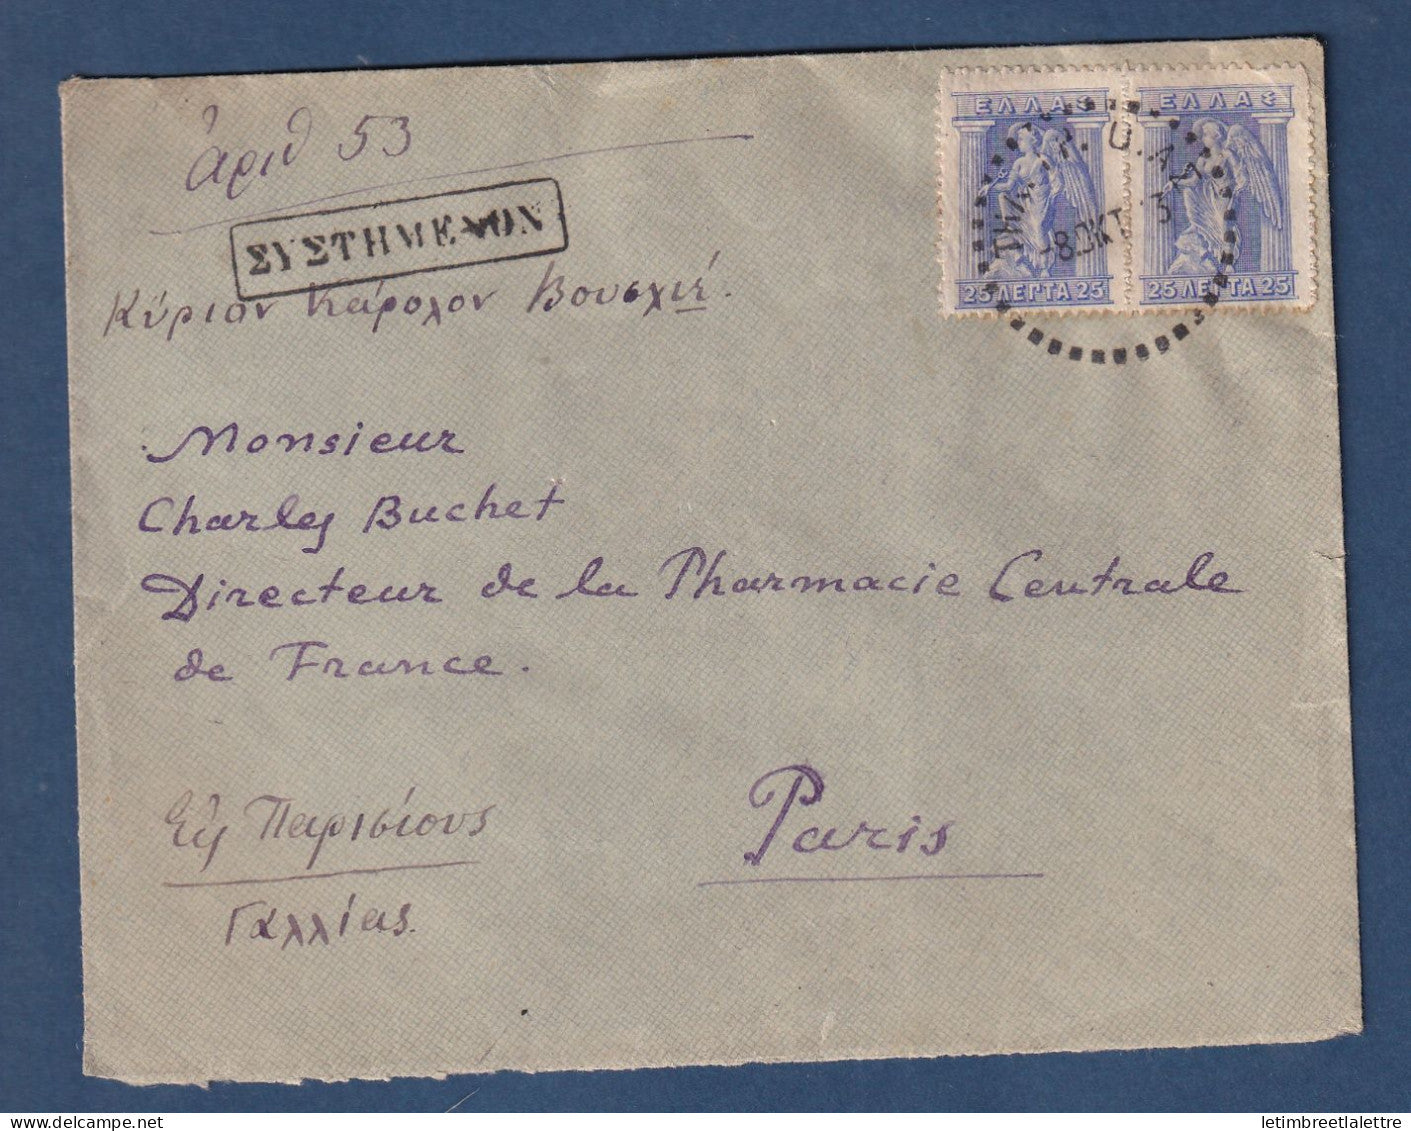 ἀριθ 53
ΣΥΣΤΗΜΕΝΟΝ
ΕΛΛΑΣ
25 ΛΕΠΤΑ 25
ΕΛΛΑΣ
25 ΛΕΠΤΑ 25
-8 ΟΚΤ. 13
Κύριον Κάρολον Βουσχιέ.
Monsieur
Charles Buchet
Directeur de la Pharmacie Centrale
de France.
Εἰς Παρισίους
Γαλλίας.
Paris
letimbreetlalettre